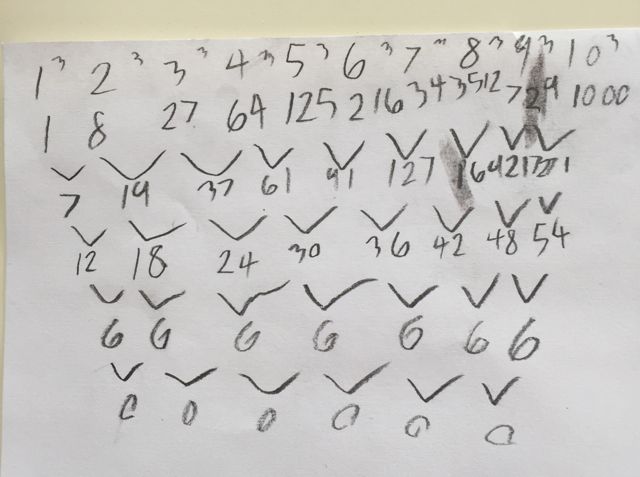 1³ 2³ 3³ 4³ 5³ 6³ 7³ 8³ 9³ 10³
1 8 27 64 125 216 343 512 729 1000
7 19 37 61 91 127 169 217 271
12 18 24 30 36 42 48 54
6 6 6 6 6 6 6
0 0 0 0 0 0